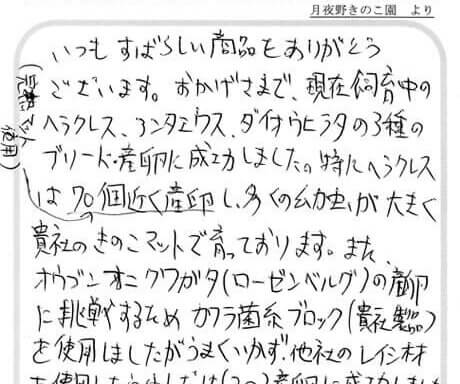 月夜野きのこ園 より
いつもすばらしい商品をありがとう
ございます。おかげさまで、現在飼育中の
ヘラクレス、コンタエウス、ダイオウヒラタの3種の
ブリード・産卵に成功しました。特にヘラクレス
は70個近く産卵し、多くの幼虫が大きく
(完熟マット使用)
貴社のきのこマットで育っております。また、
オウゴンオニクワガタ(ローゼンベルグ)の産卵
に挑戦するためカワラ菌糸ブロック(貴社製品)
を使用しましたがうまくいかず、他社のレイシ材
を使用したら